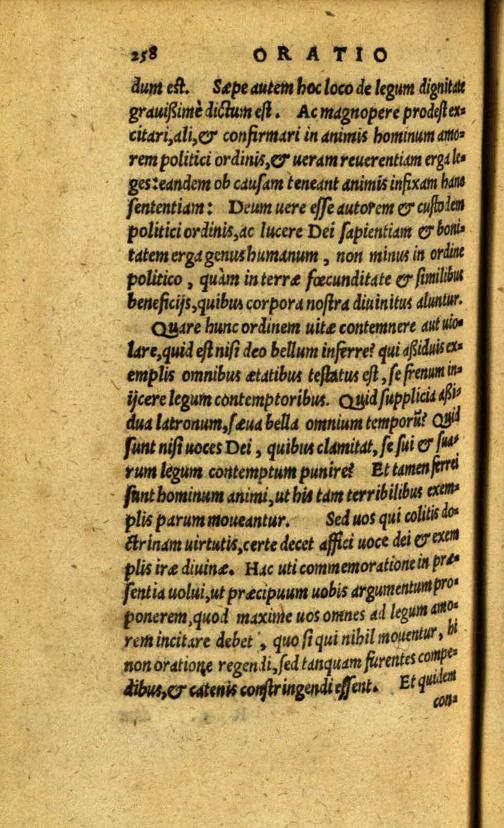 258 ORATIO
dum est. Sæpe autem hoc loco de legum dignitate
grauißimè dictum est. Ac magnopere prodest ex=
citari, ali, & confirmari in animis hominum amo=
rem politici ordinis, & ueram reuerentiam erga le=
ges: eandem ob causam teneant animis infixam hanc
sententiam: Deum uere esse autorem & custodem
politici ordinis, ac lucere Dei sapientiam & boni=
tatem erga genus humanum, non minus in ordine
politico, quàm in terræ fœcunditate & similibus
beneficijs, quibus corpora nostra diuinitus aluntur.
Quare hunc ordinem uitæ contemnere aut uio=
lare, quid est nisi deo bellum inferre? qui aßiduis ex=
emplis omnibus ætatibus testatus est, se frenum in=
ijcere legum contemptoribus. Quid supplicia aßi=
dua latronum, sæua bella omnium temporū? Quid
sunt nisi uoces Dei, quibus clamitat, se sui & sua=
rum legum contemptum punire? Et tamen ferrei
sunt hominum animi, ut his tam terribilibus exem=
plis parum moueantur. Sed uos qui colitis do=
ctrinam uirtutis, certe decet affici uoce dei & exem
plis iræ diuinæ. Hac uti commemoratione in præ=
sentia uolui, ut præcipuum uobis argumentum pro=
ponerem, quod maxime uos omnes ad legum amo=
rem incitare debet, quo si qui nihil mouentur, hi
non oratione regendi, sed tanquam furentes compe=
dibus, & catenis constringendi essent. Et quidem
con=